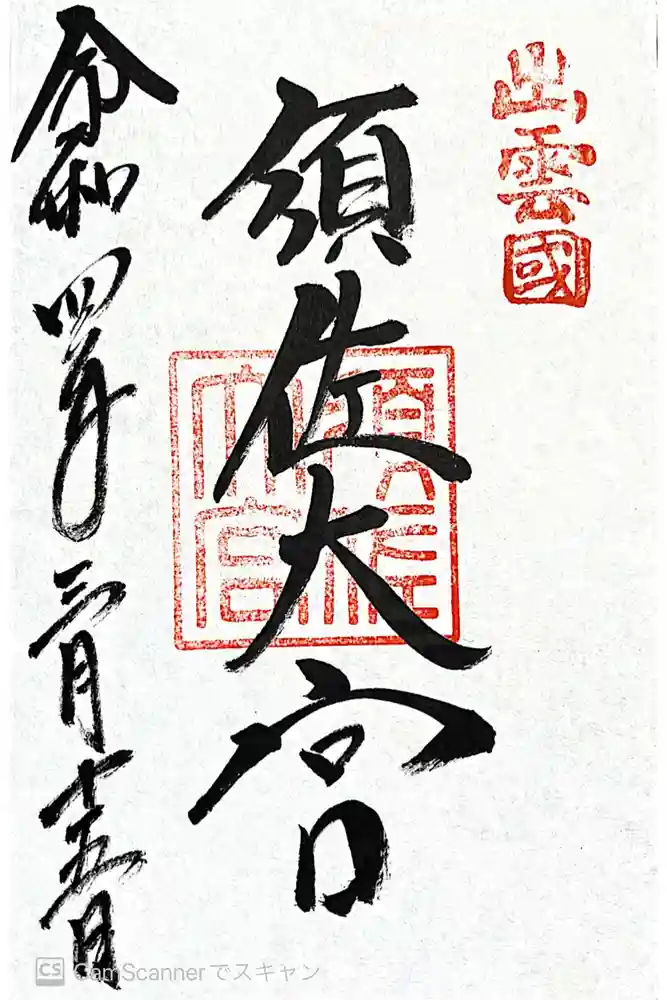 出雲國
須佐大宮
須佐大宮
令和四年三月十五日
CS CamScannerでスキャン